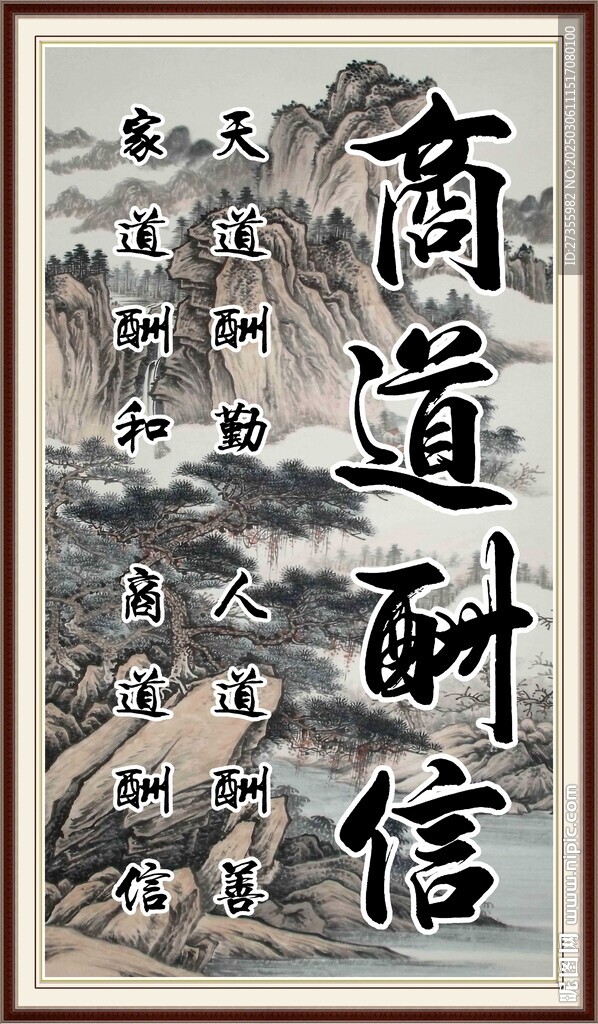 商道酬信
天道酬勤 人道酬善
家道酬和 商道酬信
ID:27355982 NO:20250306111517080100
昵图网 www.nipic.com